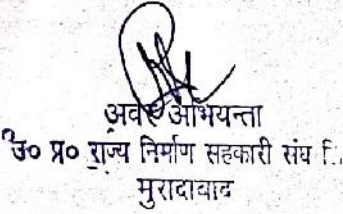 अवर अभियन्ता
उ० प्र० राज्य निर्माण सहकारी संघ लि.
मुरादाबाद